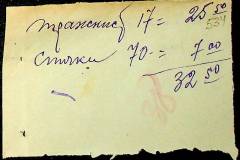 17 = 25 50
534
Спички 70 = 7 00
32 50